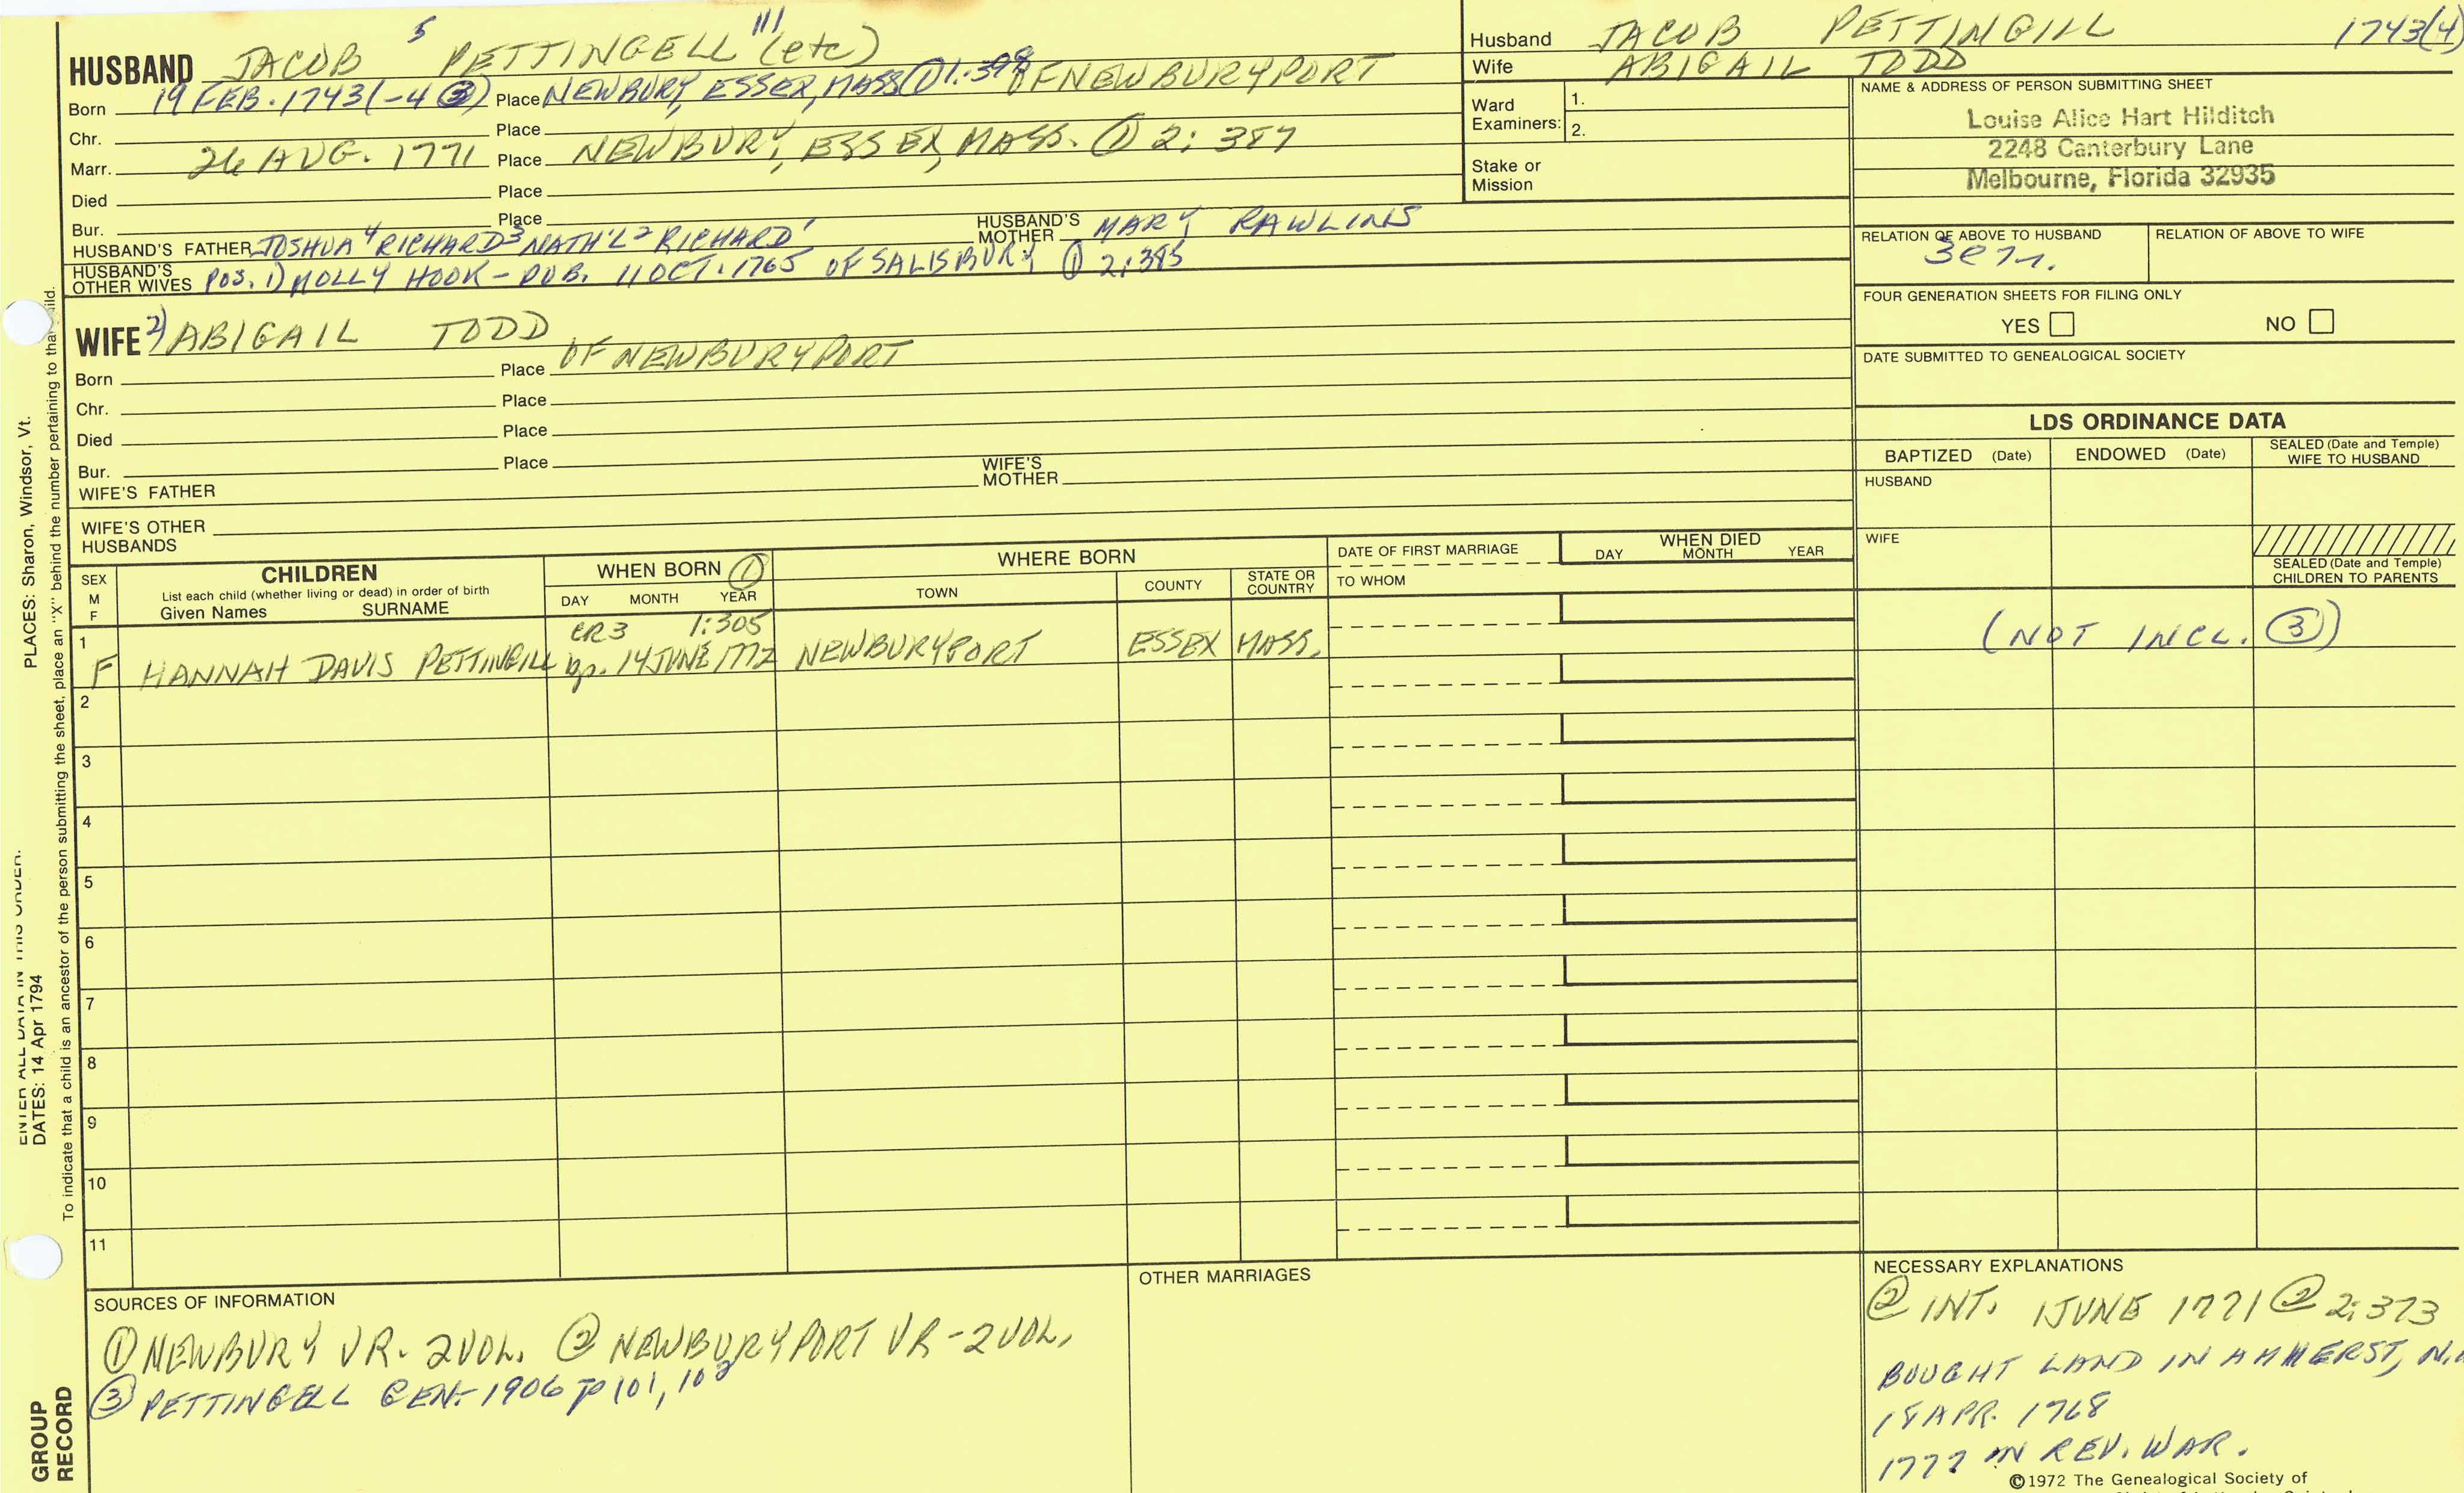 HUSBAND JACOB 5 PETTINGELL III (etc)
Born 19 FEB. 1743(-4 ③) Place NEWBURY, ESSEX, MASS ① 1:398 OF NEWBURYPORT
Chr. Place
Marr. 26 AUG. 1771 Place NEWBURY, ESSEX, MASS. ① 2: 387
Died Place
Bur. Place
HUSBAND'S FATHER JOSHUA 4 RICHARD 3 NATH'L 2 RICHARD 1 HUSBAND'S MOTHER MARY RAWLINS
HUSBAND'S OTHER WIVES POS. 1) MOLLY HOOK - PUB. 11 OCT. 1765 OF SALISBURY ① 2:385
WIFE 2) ABIGAIL TODD
Born Place OF NEWBURYPORT
Chr. Place
Died Place
Bur. Place
WIFE'S FATHER WIFE'S MOTHER
WIFE'S OTHER HUSBANDS
Husband JACOB PETTINGILL 1743(4)
Wife ABIGAIL TODD
Ward Examiners: 1.
2.
Stake or Mission
NAME & ADDRESS OF PERSON SUBMITTING SHEET
Louise Alice Hart Hilditch
2248 Canterbury Lane
Melbourne, Florida 32935
RELATION OF ABOVE TO HUSBAND RELATION OF ABOVE TO WIFE
FOUR GENERATION SHEETS FOR FILING ONLY
YES NO
DATE SUBMITTED TO GENEALOGICAL SOCIETY
LDS ORDINANCE DATA
BAPTIZED (Date) ENDOWED (Date) SEALED (Date and Temple) WIFE TO HUSBAND
HUSBAND
WIFE
SEALED (Date and Temple) CHILDREN TO PARENTS
(NOT INCL. ③)
SEX M F
CHILDREN
List each child (whether living or dead) in order of birth
Given Names SURNAME
WHEN BORN ①
DAY MONTH YEAR
WHERE BORN
TOWN COUNTY STATE OR COUNTRY
DATE OF FIRST MARRIAGE
TO WHOM
WHEN DIED
DAY MONTH YEAR
CR3 1:305
1 F HANNAH DAVIS PETTINGILL bp. 14 JUNE 1772 NEWBURYPORT ESSEX MASS.
2
3
4
5
6
7
8
9
10
11
SOURCES OF INFORMATION
① NEWBURY VR. 2 VOL. ② NEWBURYPORT VR - 2 VOL.
③ PETTINGELL GEN. 1906 p 101, 102
OTHER MARRIAGES
NECESSARY EXPLANATIONS
② INT. 1 JUNE 1771 ② 2:373
BOUGHT LAND IN AMHERST,
18 APR. 1768
1777 IN REV. WAR.
©1972 The Genealogical Society of
PLACES: Sharon, Windsor, Vt.
ENTER ALL DATA IN THIS ORDER:
DATES: 14 Apr 1794
To indicate that a child is an ancestor of the person submitting the sheet, place an "X" behind the number pertaining to that child.
GROUP
RECORD